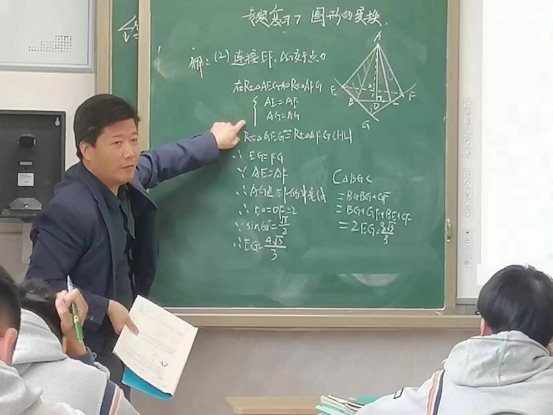 专题复习7 图形的变换
解:(2)连接EF,AG交于点O
在Rt△AEG和Rt△AFG
{ AE=AF
AG=AG
Rt△AEG≌Rt△AFG(HL)
∴ EG=FG
∵ AE=AF
∴ AG是EF的中垂线
∴ EO=OF=2
∵ sin60°=√3/2
∴ EG=4√3/3
C△BGC
=BG+BG+CF
=BG+GF+BE+CF
=2EG=8√3/3
A
E
B
D
C
F
G